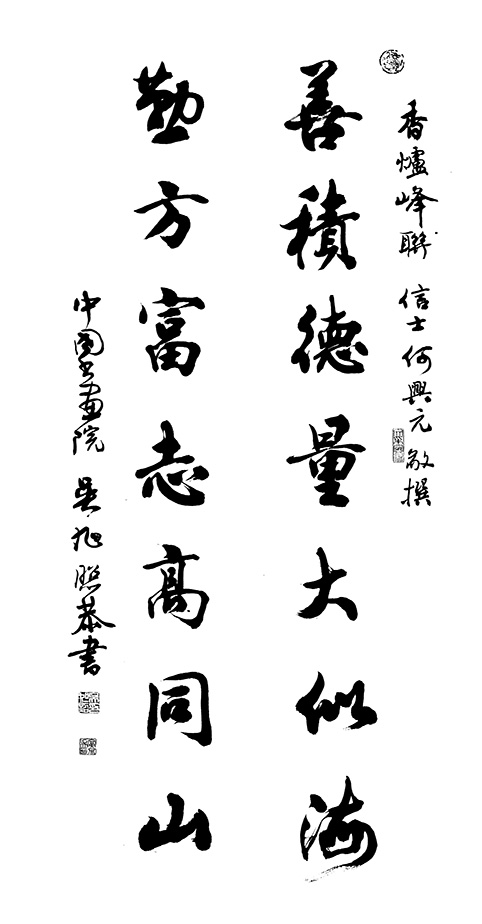 香爐峰聯 信士何興元敬撰
善積德量大似海
勤方富志高同山
中国书画院 吴旭照恭書